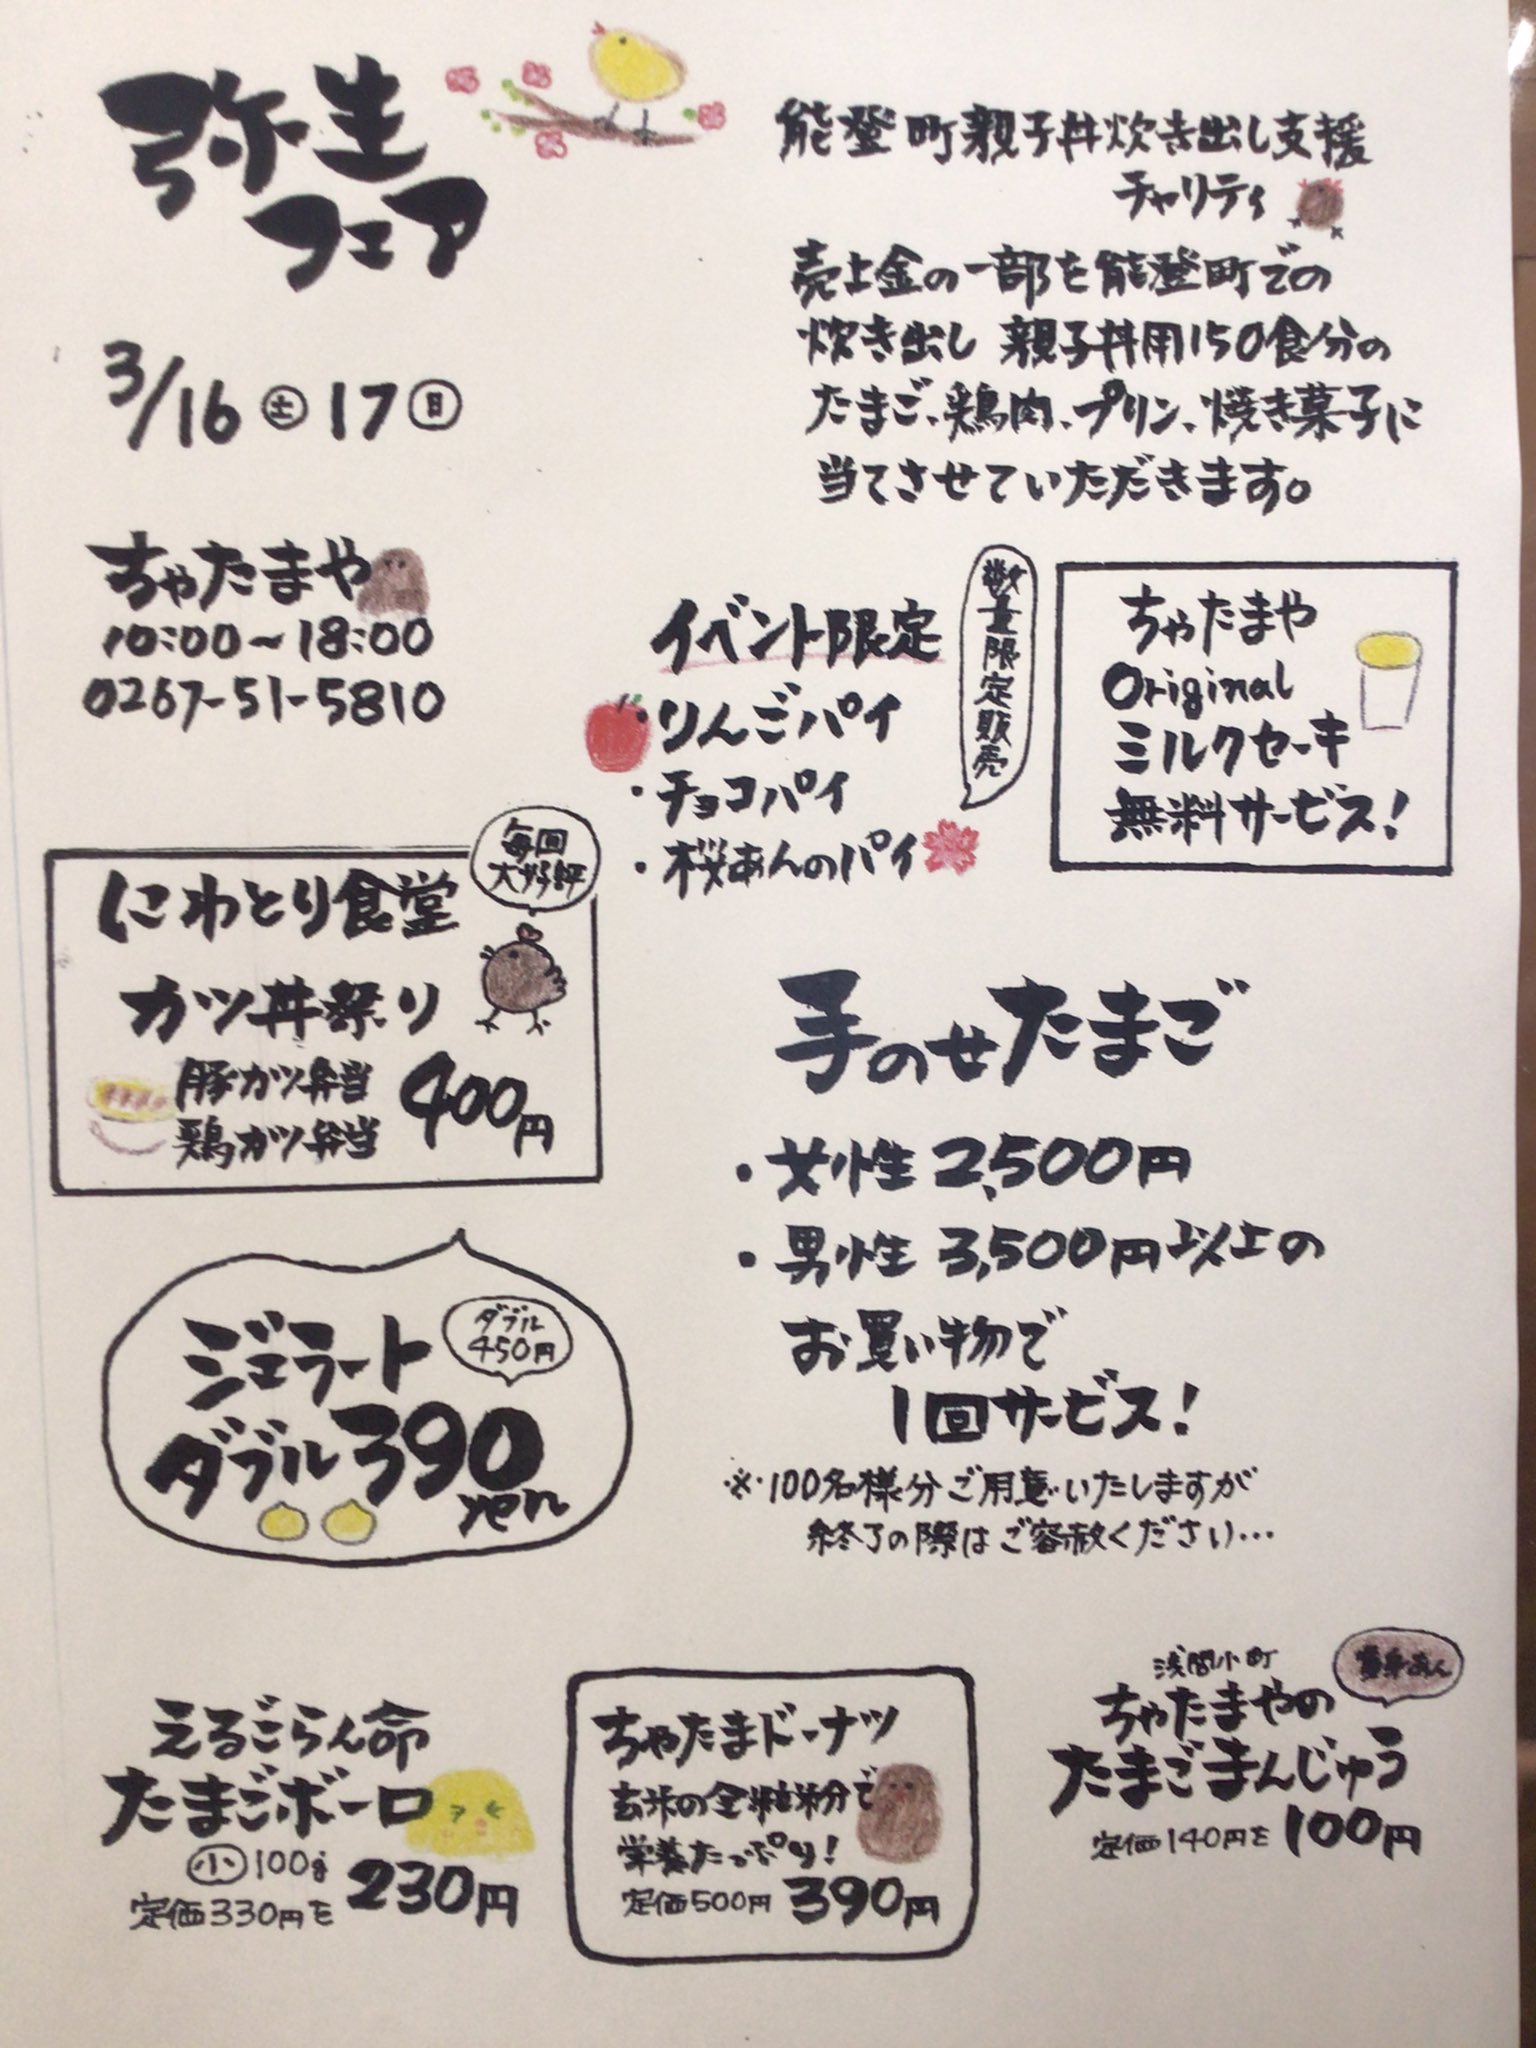 弥生
フェア
3/16㊏17㊐
ちゃたまや
10:00~18:00
0267-51-5810
能登町親子丼炊き出し支援
チャリティ
売上金の一部を能登町での
炊き出し 親子丼用150食分の
たまご、鶏肉、プリン、焼き菓子に
当てさせていただきます。
イベント限定
・りんごパイ
・チョコパイ
・桜あんのパイ
数量限定販売
ちゃたまや
Original
ミルクセーキ
無料サービス!
毎回
大好評
にわとり食堂
カツ丼祭り
豚カツ弁当
鶏カツ弁当
400円
手のせたまご
・女性 2,500円
・男性 3,500円以上の
お買い物で
1回サービス!
※100名様分ご用意いたしますが
終了の際はご容赦ください…
ジェラート
ダブル
450円
ダブル390
yen
えるごらん命
たまごボーロ
㊙小 100g
定価330円を 230円
ちゃたまドーナツ
玄米の全粒粉で
栄養たっぷり!
定価500円 390円
浅間小町
ちゃたまやの
たまごまんじゅう
黄身あん
定価140円を 100円